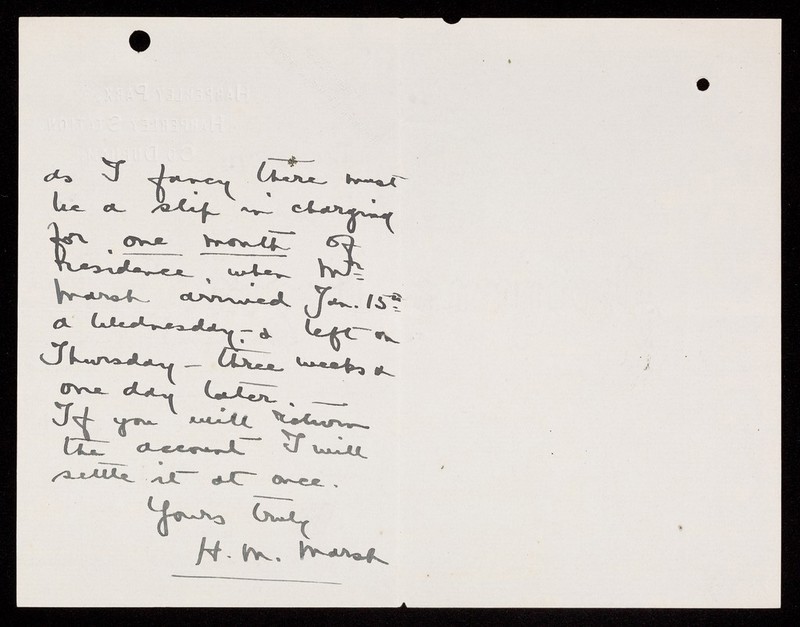 as I fancy there must
be a slip in charging
for one month of
residence, when Mr
Marsh arrived Jan. 15th
a Wednesday, - & left on
Thursday - three weeks &
one day later. -
If you will return
the account I will
settle it at once.
Yours truly
H. M. Marsh